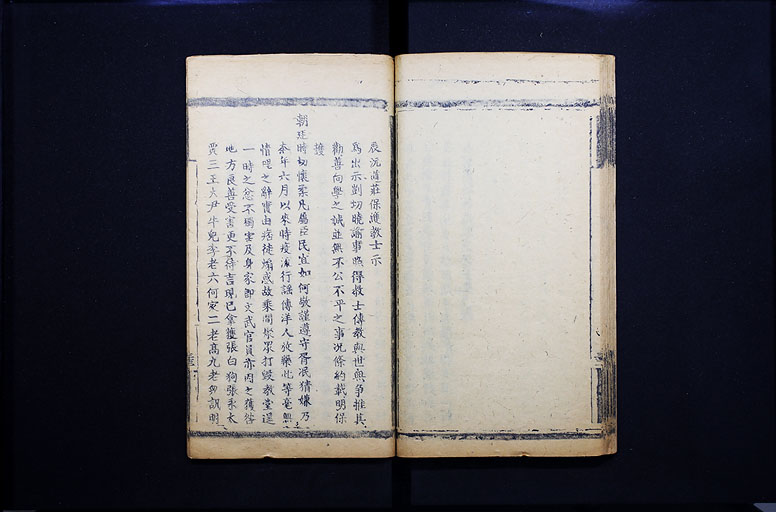 辰沅道莊保護教士示
為出示剴切曉諭事照得教士傳教與世無爭推其
勸善向學之誠並無不公不平之事況條約載明保
護
朝廷時切懷柔凡屬臣民宜如何敬謹遵守胥泯猜嫌乃
本年六月以來時疫流行謠傳洋人放藥此等毫無
情理之辭實由痞徒煽惑故乘間聚眾打毀教堂逞
一時之忿不獨害及身家即文武官員亦因之獲咎
地方良善受害更不待言現已拿獲張白狗張永太
賈三王夫尹牛兒李老六何家二老高九老 訊明